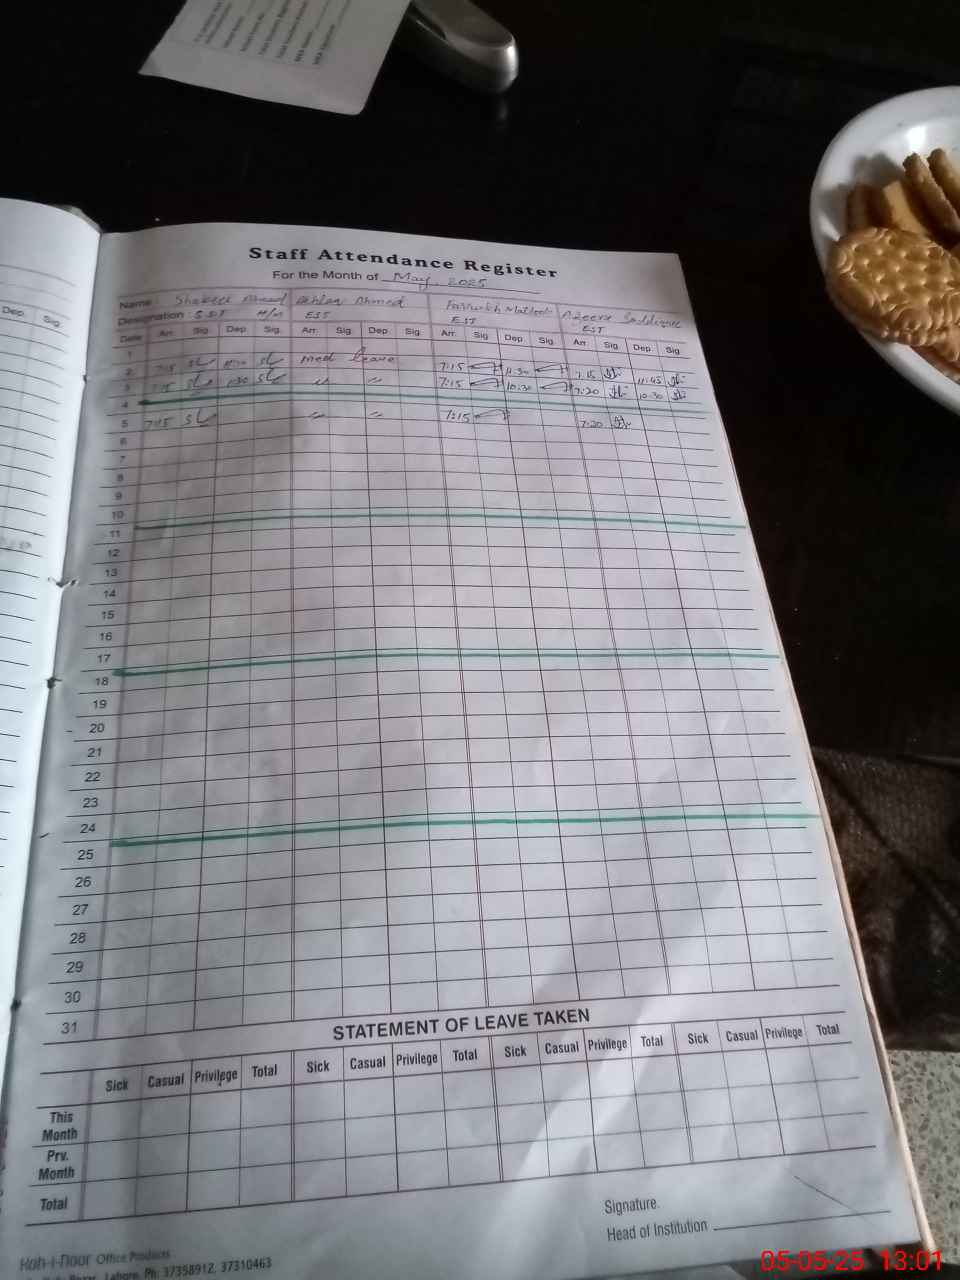 Dep. Sig.
Staff Attendance Register
For the Month of May, 2025
Name: Shakeel Ahmad Ashfaq Ahmed Farrukh
Designation: S.S.T H/M EST EST EST
Date Arr. Sig. Dep. Sig. Arr. Sig. Dep. Sig. Arr. Sig. Dep. Sig. Arr. Sig. Dep. Sig.
1
2 7:15 med leave 7:15 11:30 7:15 11:45
3 7:15 " " 7:15 10:30 7:20 10:30
4
5 7:15 " " 7:15 7:20
6
7
8
9
10
11
12
13
14
15
16
17
18
19
20
21
22
23
24
25
26
27
28
29
30
31
STATEMENT OF LEAVE TAKEN
Sick Casual Privilege Total Sick Casual Privilege Total Sick Casual Privilege Total Sick Casual Privilege Total
This Month
Prv. Month
Total
Signature.
Head of Institution
Koh-i-Noor Office Products
Lahore. Ph: 37358912, 37310463
05-05-25 13:01